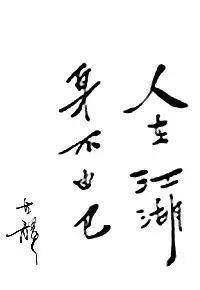 人在江湖
身不由己
古龙